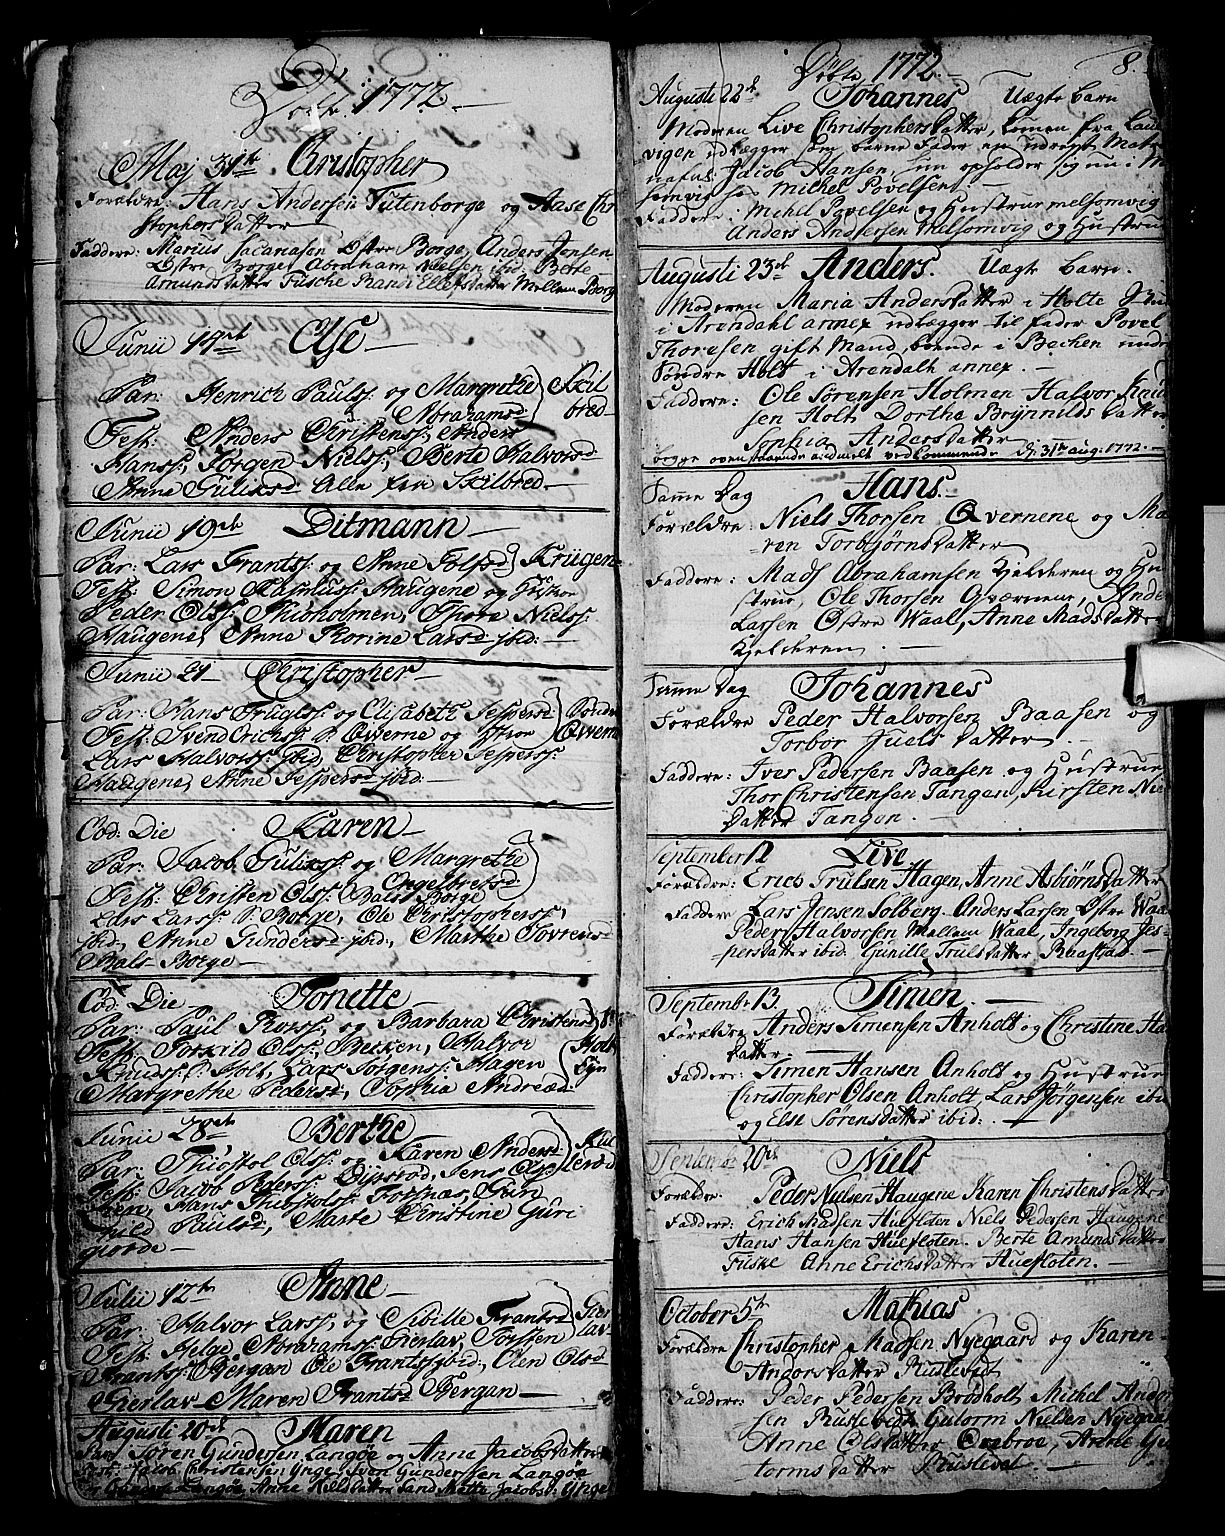 Døbte. 1772.
Maj 31te Christopher
Forældre: Hans Andersen Tutenborge og Aase Chri
stophersdatter
Faddere: Marius Sacariasen Østre Borge, Anders Jensen
Østre Borge, Abraham Nielsen ibid, Berte
Amundsdatter Fusche Randi Ellefsdatter Mellem Borg
Junii 17de Else
Par: Henrich Pauls: og Margrethe Skil
Abrahamsd bred
Test: Anders Christens: Anders
Hans: Jørgen Niels: Berte Halvorsd
Anne Guliksd Alle fra Skilbred
Junii 19de Ditmann
Par: Lars Frants: og Anne Tolfsd Kriigen
Test: Simon Rasmus: Haugene og Hustroe
Peder Ols: Thore Niels:
Haugene, Anne Karine Larsd ibid:
Junii 21 Christopher
Par: Hans Trugls: og Elisabeth Jespersd Søndre
Test: Svend Erichs: S. Qverne og Hstroe Qvern
Lars Halvors: ibid, Christopher Jespers:
Haugene, Anne Jespersd ibid:
Eod: Die Karen
Par: Jacob Guliks: og Margrethe
Engelbretsd
Test: Christen Ols: Bals Borge
Lars Lars: Borge, Ole Christophers:
ibid, Anne Gundersd ibid:, Marthe Sørensd
Bals Borge
Eod: Die Tonette
Par: Paul Thors: og Barbara Christensd S:
Test: Torkild Ols: Bekken, Halvor Holt
Knuds: S: Holt, Lars Jørgens: Hagen
Margrethe Pedersd, Sophia Andreæd
Junii 28de Berthe
Par: Thiostol Ols: og Karen Andersd Kul
Test: Jacob Pegers: Dipsrød, Jens Ols: lerød
Hans Thiostols: Fosnæs, Gun
hild Paulsd, Marte Christine Guri
giorde
Julii 12te Anne
Par: Halvor Lars: og Sibille Frantsd Gier
Test: Helge Abrahams: Gierlav, Torsten lav
Frants: Bergan Ole Frants: ibid:, Elen Olsd
Gierlav Maren Frantsd Bergan
Augusti 20de Maren
Par: Søren Gundersen Langøe og Anne Jacobsdatter
Test: Jacob Christensen Ynge, Sven Gundersen Langøe
Langøe, Anne Nielsdatter Sand Mette Jacobsd: Ynge
Døbte 1772. 8.
Augusti 22de Johannes Uægte barn
Moderen Live Christophersdatter, kommen fra Laur
vigen udlægger som barne Fader en udreist Matr
naful. Jacob Hansen, hun opholder sig nu i M
somvig hos Michel Povelsen
Faddere: Michel Povelsen og Hustrue melsomvig
Anders Andersen Melsomvig og Hustrue
Augusti 23de Anders. Uægte barn.
Moderen Maria Andersdatter i Holte
i Arendahl annex udlægger til Fader Povel
Thoresen gift Mand, boende i Bechen under
Søndre Holt i Arendahl annex.
Faddere: Ole Sørensen Holmen Halvor Knud
sen Holt Dorthe Brynnildsdatter
Sophia Andersdatter
begge ovenstaaende anmelt vedkommende d: 31te aug: 1772.
Samme Dag Hans.
Forældre: Niels Thorsen Qvernene og Ma
ren Torbjørnsdatter
Faddere: Mads Abrahamsen Kjelderen og Hu
strue, Ole Thorsen Qværnene, Ander
Larsen Østre Waal, Anne Madsdatter
Kjelderen.
Samme Dag Johannes
Forældre Peder Halvorsen Baasen og
Torbor Juelsdatter.
Faddere: Iver Pedersen Baasen og Hustrue,
Thor Christensen Tangen, Kirsten Niels
datter Tangen.
September 12 Live
Forældre: Erich Trulsen Hagen, Anne Asbiørnsdatter
Faddere Lars Jensen Solberg. Anders Larsen Østre Waa
Peder Halvorsen Mellem Waal, Ingeborg Jes-
persdatter ibid. Gunille Trulsdatter Raastad
September 13. Simen.
Forældre Anders Simensen Anholt og Christine Ha
datter.
Faddere: Simen Hansen Anholt og Hustrue
Christopher Olsen Anholt Lars Jørgensen ibid
og Else Sørensdatter ibid:
Septembr 20de Niels
Forældre: Peder Nielsen Haugene Karen Christensdatter
Faddere: Erich Madsen Hueflaten Niels Pedersen Haugene
Hans Hansen Hueflaten. Berte Amundsdatter
Fuske Anne Erichsdatter Hueflaten.
October 5te Mathias
Forældre Christopher Madsen Nyegaard og Karen
Andersdatter Ruslevedt
Faddere: Peder Pedersen Brødholt, Michel Ander
sen Ruslevedt Gutorm Nielsen Nyegaar
Anne Olsdatter Orebroe, Anne Gu
tormsdatter Ruslevet